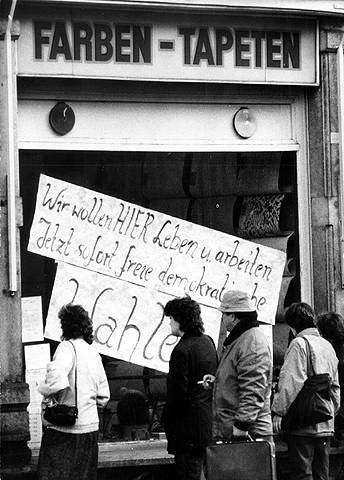 FARBEN - TAPETEN
Wir wollen HIER Leben u. arbeiten
Jetzt sofort freie demokratische
Wahle